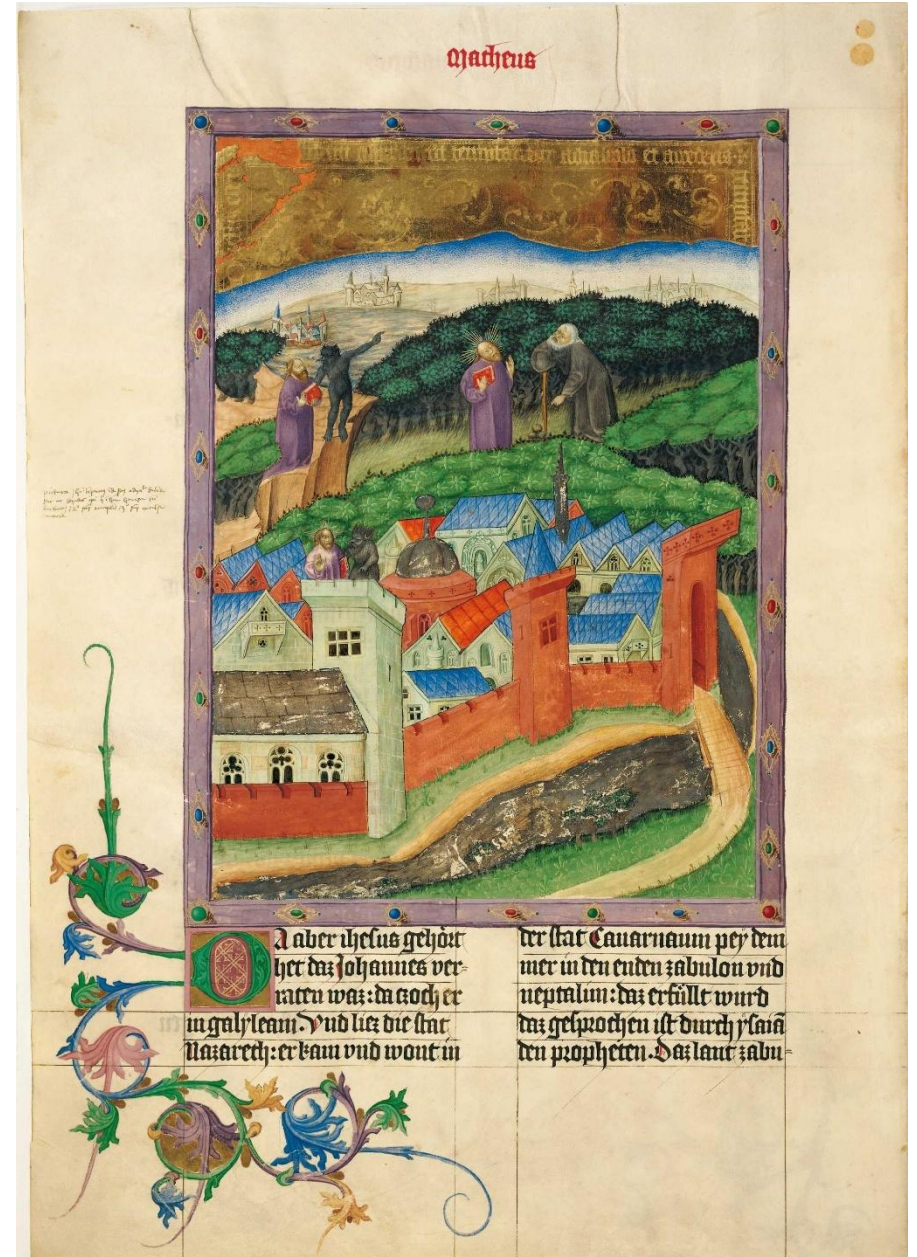 Matheus
temptar
et
DA aber ihesus gehört
het daz Johannes ver-
raten waz: da tzoch er
in galyleam. Vnd liez die stat
Nazareth: er kam vnd wont in
der stat Cauarnaum pey dem
mer in den enden zabulon vnd
neptalim: daz erfüllt wurd
daz gesprochen ist durch ysaiā
den propheten. Daz lant zabu-